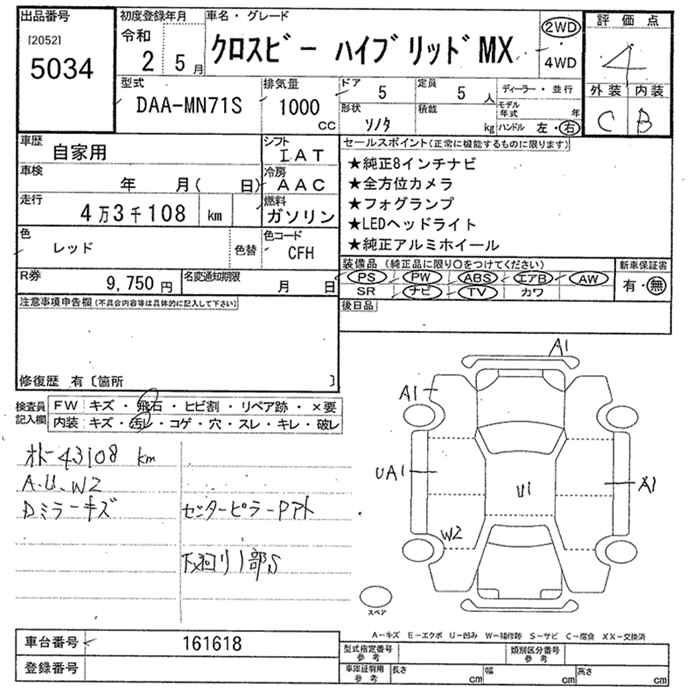 出品番号
[2052]
5034
初度登録年月
令和
2 5月
車名・グレード
クロスビー ハイブリッドMX
2WD
4WD
評価点
4
外装 内装
C B
型式
DAA-MN71S
排気量
1000
CC
ドア
5
定員
5 人
形状
ソノタ
積載
kg
ディーラー・並行
モデル年式 年
ハンドル 左・右
車歴
自家用
シフト
IAT
車検
年 月( 日)
冷房
AAC
走行
4万3千108 km
燃料
ガソリン
色
レッド
色替
色コード
CFH
R券
9,750円
名変通知期限
月 日
セールスポイント(正常に機能するものに限ります)
★純正8インチナビ
★全方位カメラ
★フォグランプ
★LEDヘッドライト
★純正アルミホイール
装備品(純正品に限り○をつけてください)
PS PW ABS エアB AW
SR ナビ TV カワ
新車保証書
有・無
後日品
注意事項申告欄(不具合内容等は具体的に記入して下さい)
修復歴 有〔箇所 〕
検査員記入欄
FW キズ・飛石・ヒビ割・リペア跡・×要
内装 キズ・汚レ・コゲ・穴・スレ・キレ・破レ
43108 km
A.U.W2
Dミラーキズ
センターピラーPアト
1部S
A1
A1
UA1
U1
A1
W2
スペア
A-キズ E-エクボ U-凹み W-補修跡 S-サビ C-腐食 XX-交換済
車台番号
161618
登録番号
型式指定番号
参考
類別区分番号
参考
車庫証明用
参考
長さ cm
幅 cm
高さ cm